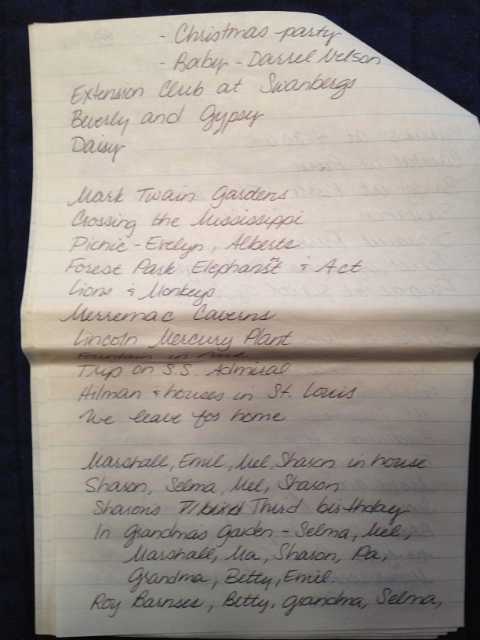 - Christmas party
- Baby - Darrel Nelson
Extension Club at Swanbergs
Beverly and Gypsy
Daisy
Mark Twain Gardens
Crossing the Mississippi
Picnic - Evelyn, Alberts
Forest Park Elephants & Act
Lions & Monkeys
Merremac Caverns
Lincoln Mercury Plant
Fountain in
Trip on S.S. Admiral
& houses in St. Louis
We leave for home
Marshall, Emil, Mel, Sharon in house
Sharon, Selma, Mel, Sharon
Sharons Third birthday
In Grandmas Garden - Selma, Mel,
Marshall, Ma, Sharon, Pa,
Grandma, Betty, Emil
Roy Barnses, Betty, Grandma, Selma,